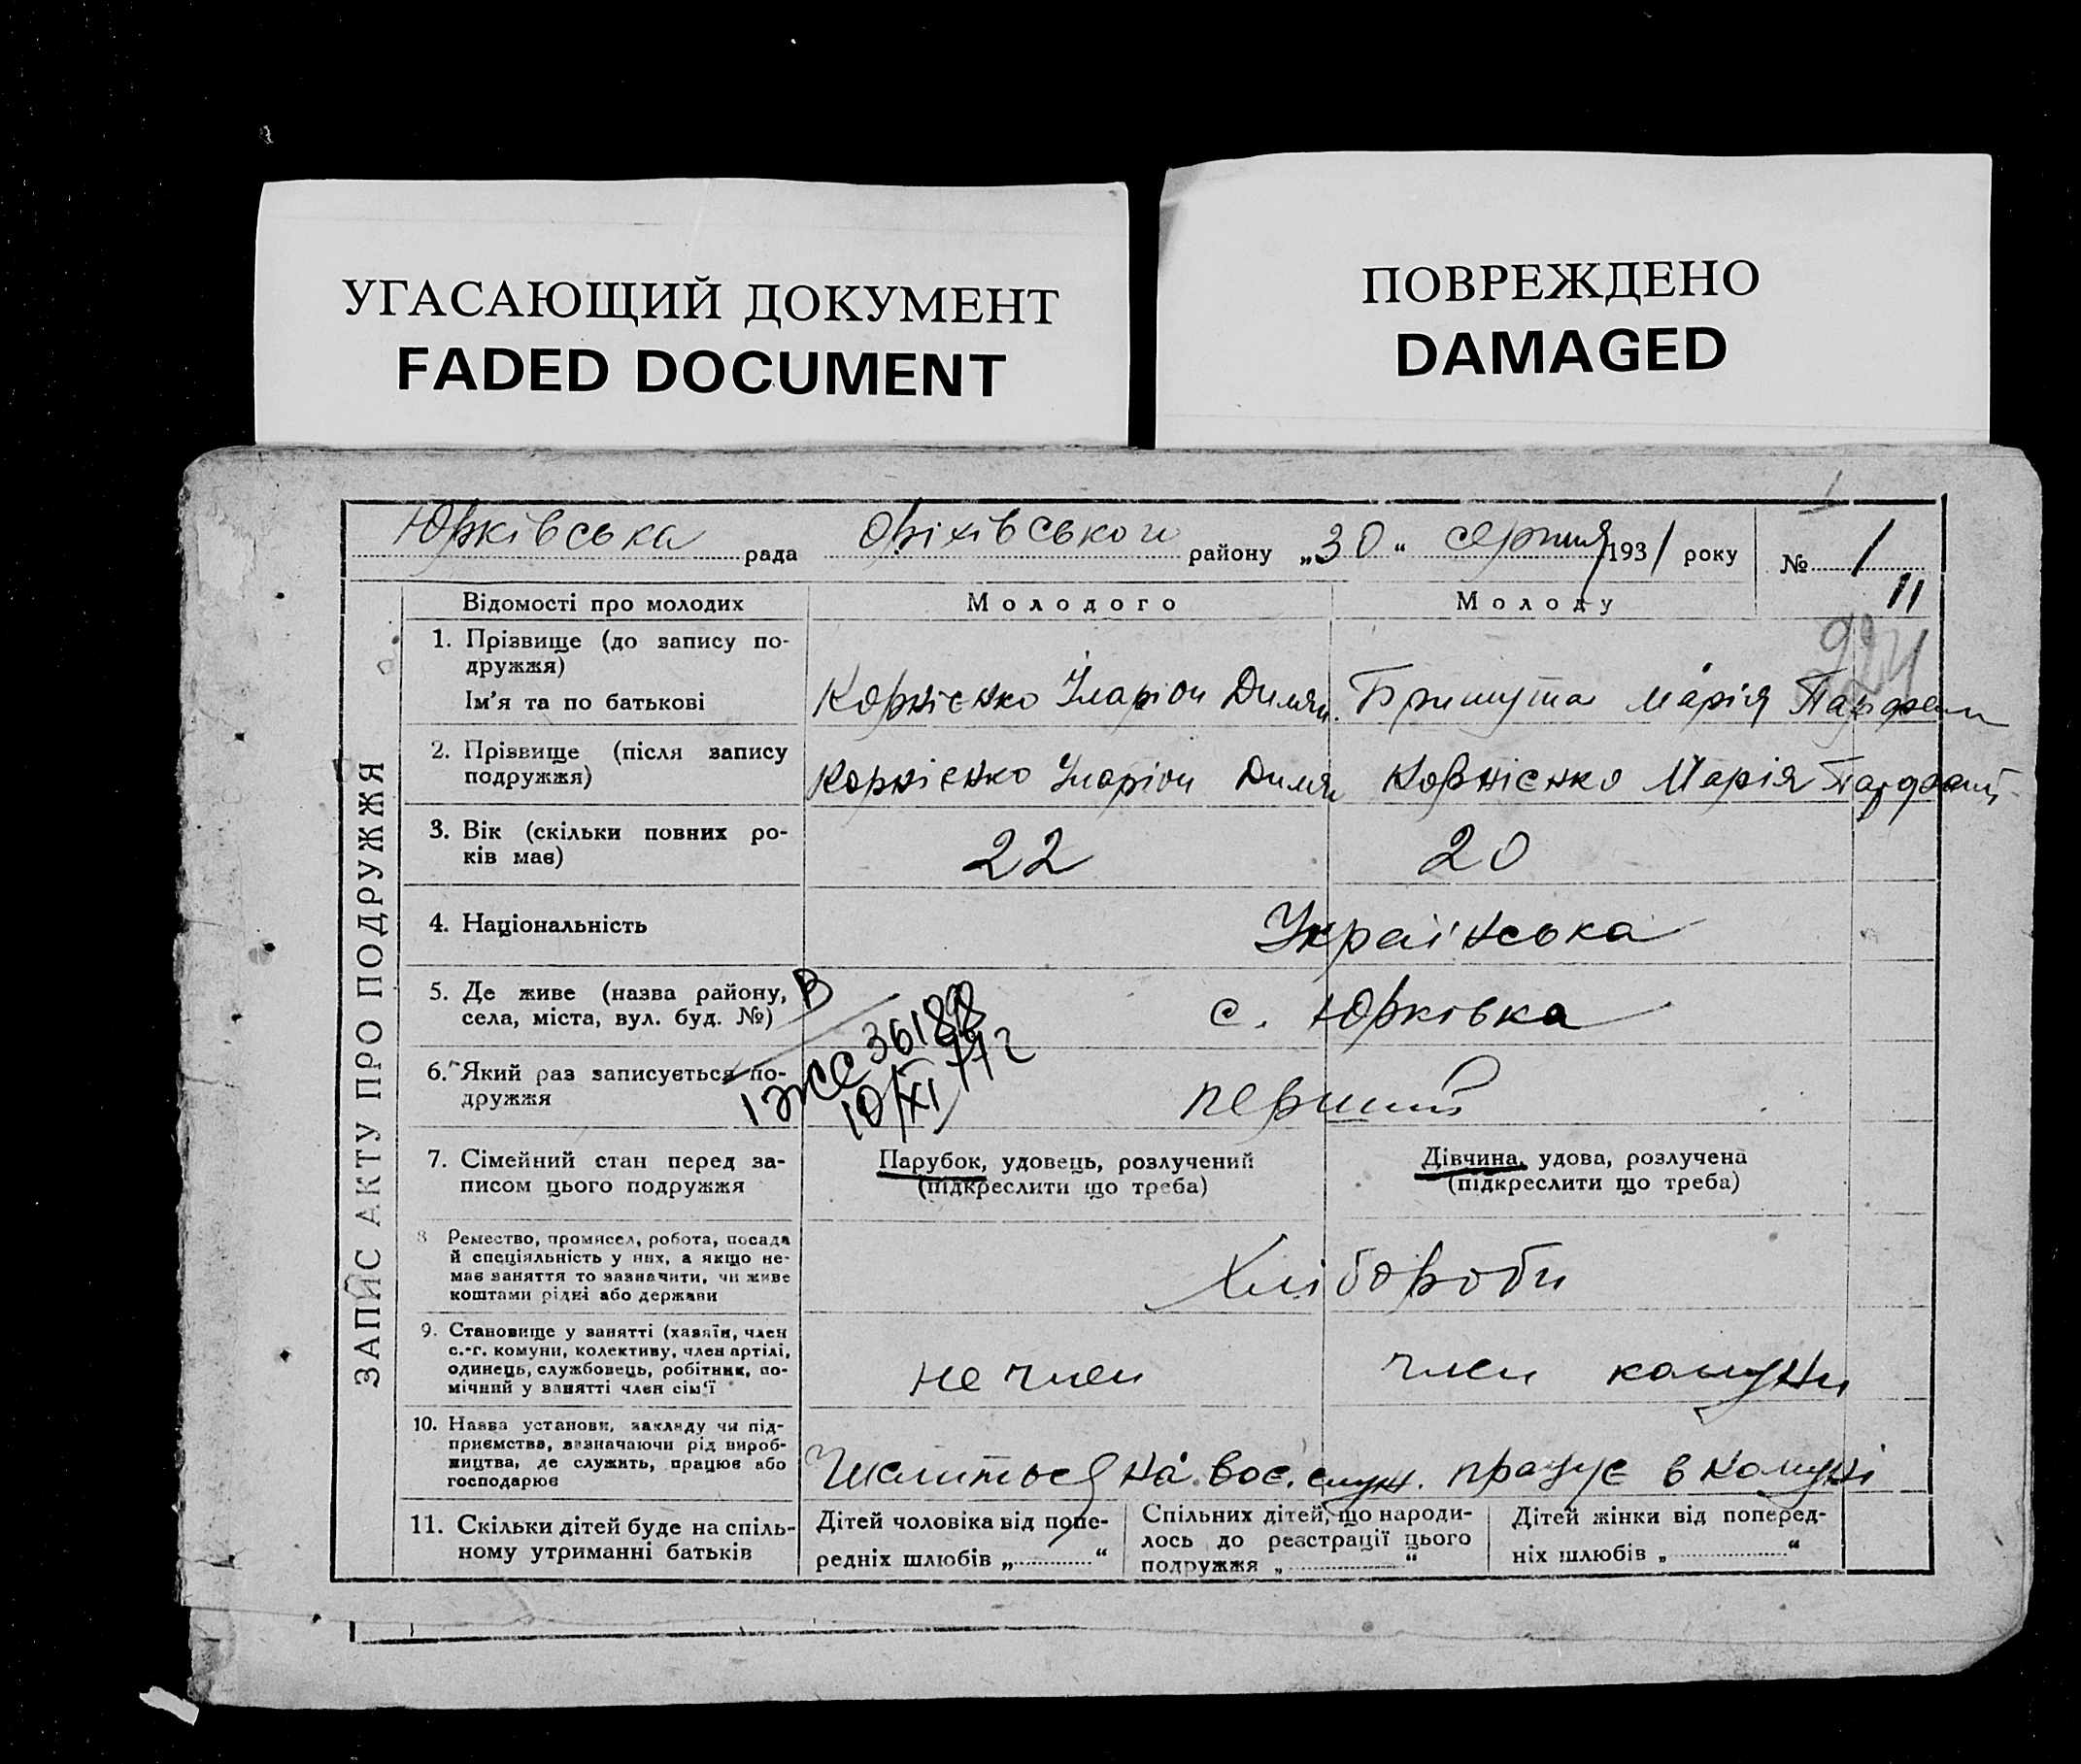 УГАСАЮЩИЙ ДОКУМЕНТ
FADED DOCUMENT
ПОВРЕЖДЕНО
DAMAGED
Юрківська рада Оріхівського району „30“ серпня 1931 року № 1
11
ЗАПИС АКТУ ПРО ПОДРУЖЖЯ
Відомості про молодих Молодого Молоду
1. Прізвище (до запису по-
дружжя)
Ім'я та по батькові Корнієнко Іларіон Димян. Марія Парфен
2. Прізвище (після запису
подружжя) Корнієнко Іларіон Димян Корнієнко Марія
3. Вік (скільки повних ро-
ків має) 22 20
4. Національність Українська
5. Де живе (назва району,
села, міста, вул. буд. №) с. Юрківка
6. Який раз записується по-
дружжя перший
10/XI
7. Сімейний стан перед за-
писом цього подружжя
Парубок, удовець, розлучений
(підкреслити що треба)
Дівчина, удова, розлучена
(підкреслити що треба)
8 Ремество, промисел, робота, посада
й спеціяльність у них, а якщо не-
має заняття то зазначити, чи живе
коштами рідні або держави Хлібороби
9. Становище у занятті (хазяїн, член
с.-г. комуни, колективу, член артілі,
одинець, службовець, робітник, по-
мічний у занятті член сім'ї не член член комуни
10. Назва установи, закладу чи під-
приємства, зазначаючи рід вироб-
ництва, де служить, працює або
господарює Числиться на воє. служ. працує в комуні
11. Скільки дітей буде на спіль-
ному утриманні батьків
Дітей чоловіка від попе-
редніх шлюбів „ “
Спільних дітей, що народи-
лось до реєстрації цього
подружжя „ “
Дітей жінки від поперед-
ніх шлюбів „ “